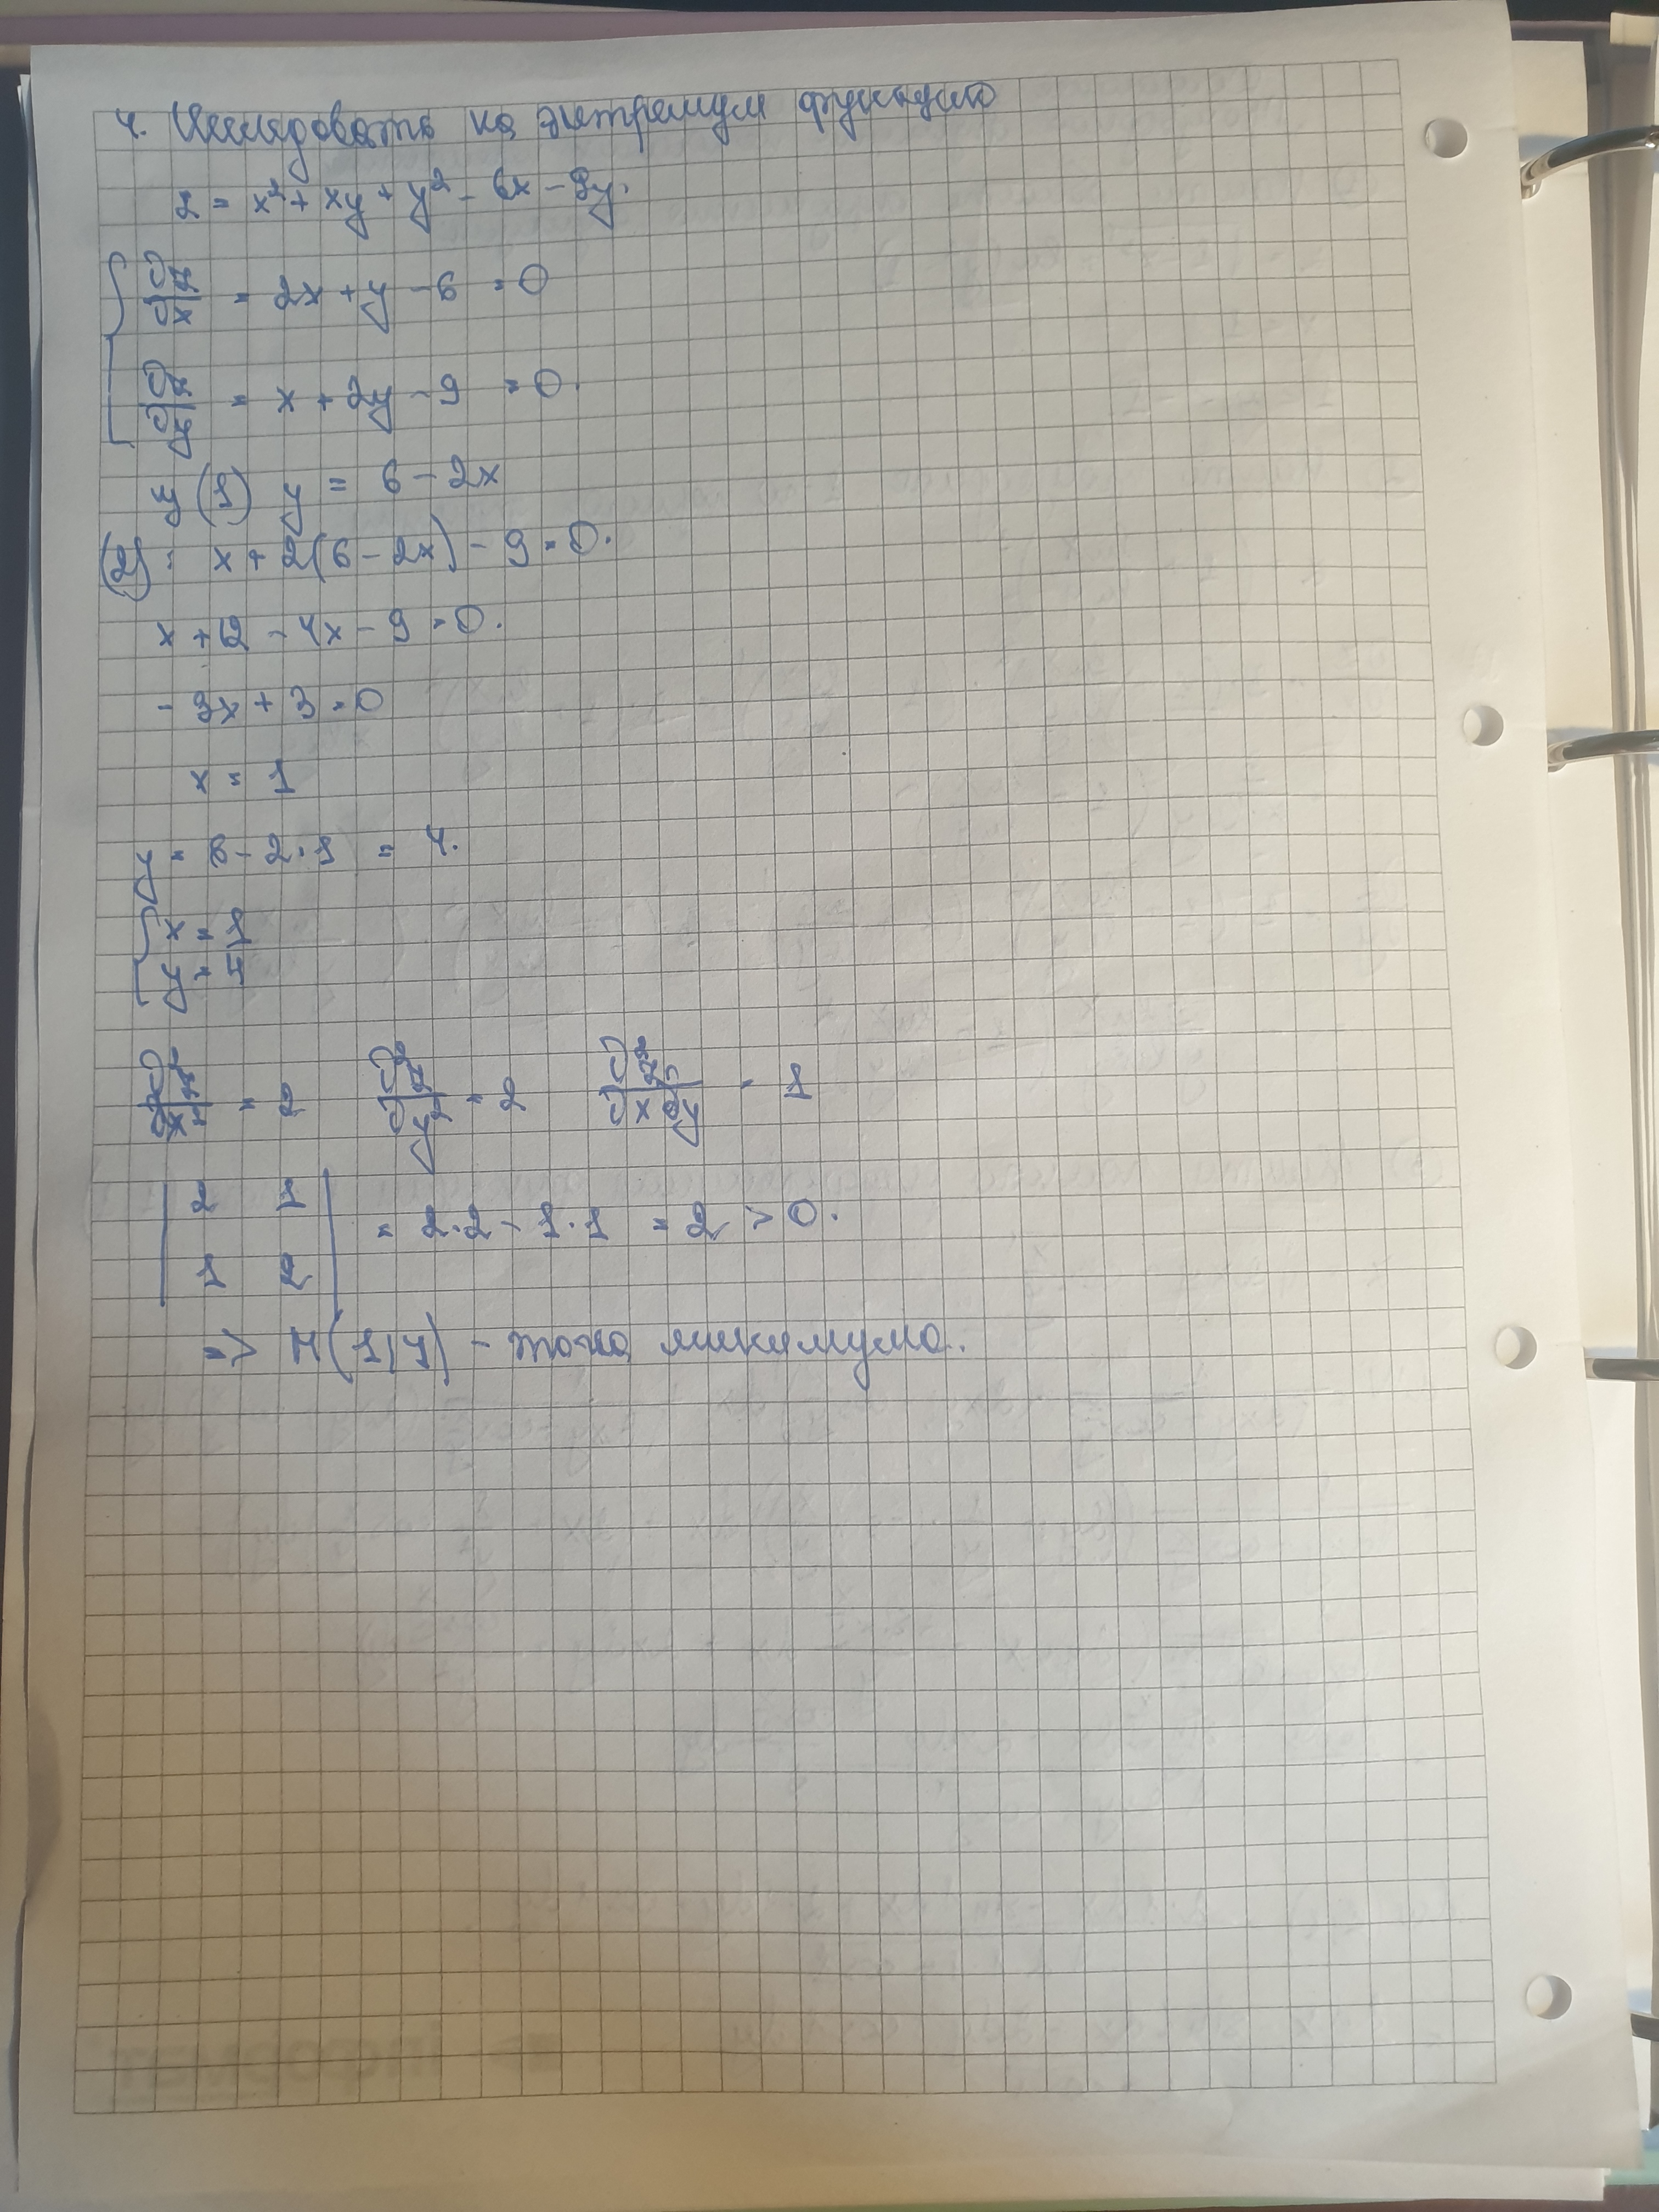 4. Исследовать на экстремум функцию
z = x² + xy + y² - 6x - 9y.
∂z/∂x = 2x + y - 6 = 0
∂z/∂y = x + 2y - 9 = 0.
(1) y = 6 - 2x
(2): x + 2(6 - 2x) - 9 = 0.
x + 12 - 4x - 9 = 0.
- 3x + 3 = 0
x = 1
y = 6 - 2·1 = 4.
x = 1
y = 4
∂²z/∂x² = 2 ∂²z/∂y² = 2 ∂²z/∂x∂y = 1
| 2 1 |
= 2·2 - 1·1 = 2 > 0.
| 1 2 |
=> M(1,4) - точка минимума.